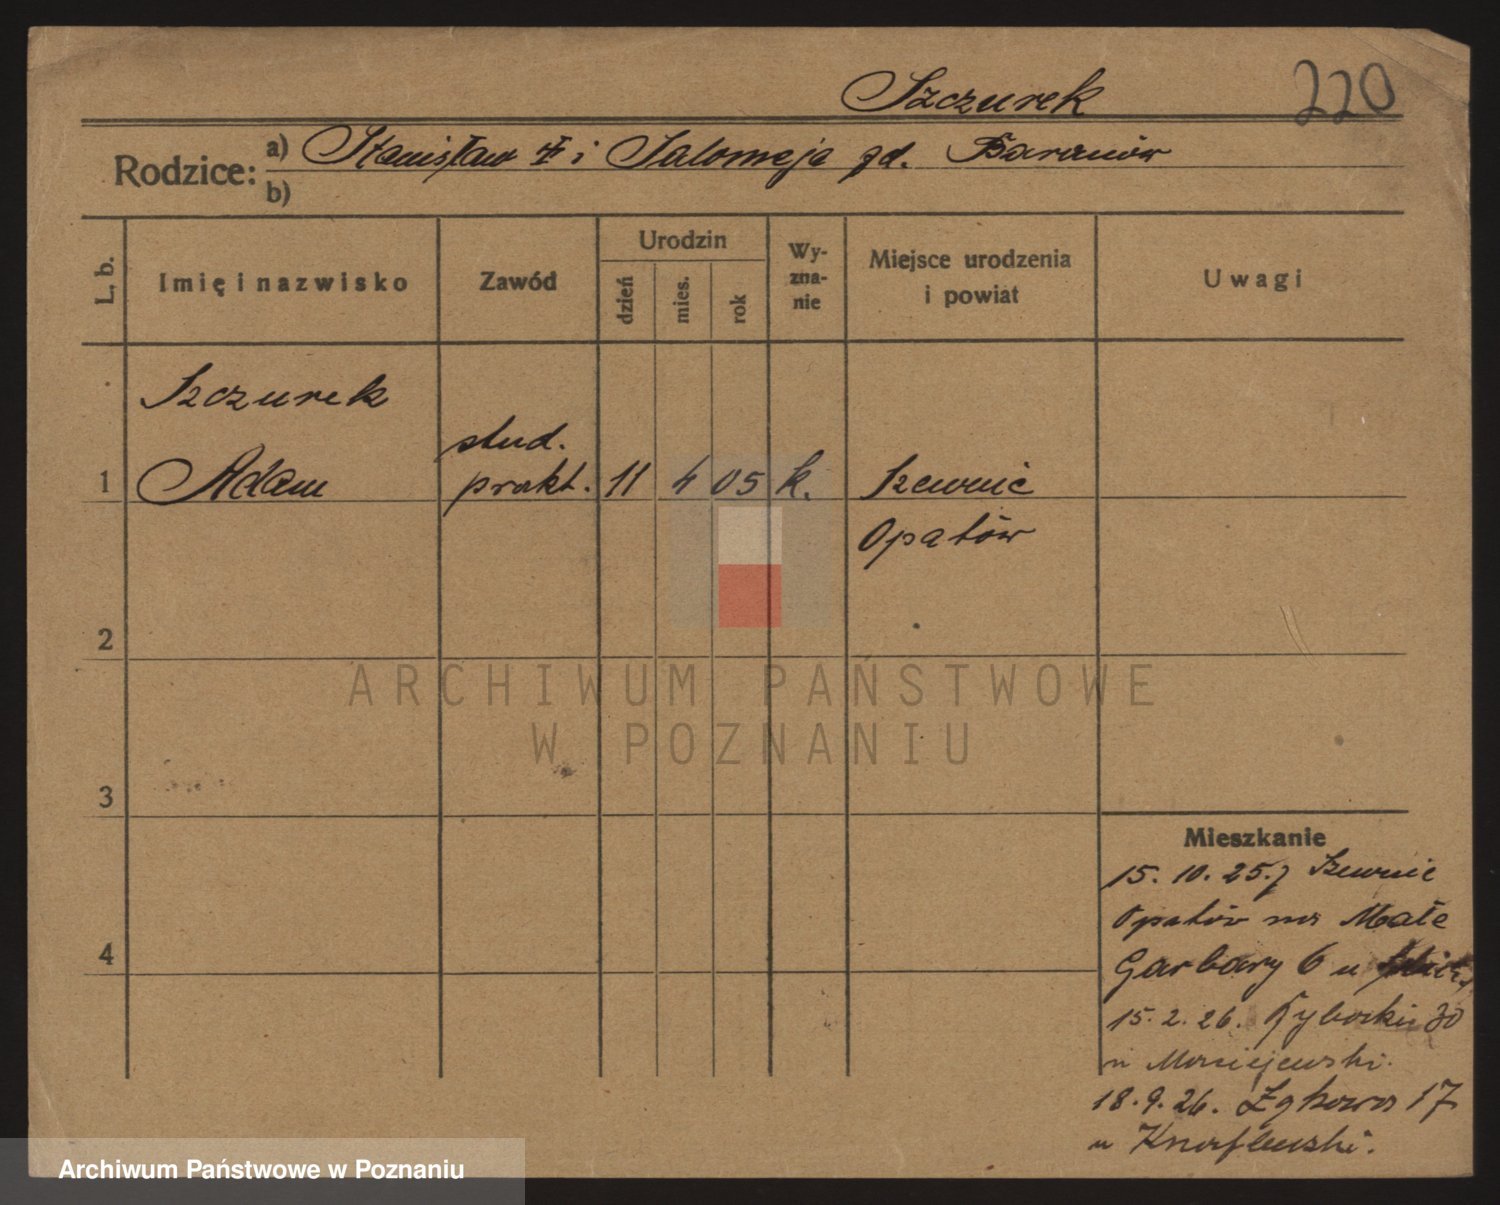 Szczurek 220
Rodzice: a) Stanisław i Salomeja zd. Baranów
b)
L. b. Imię i nazwisko Zawód Urodzin dzień mies. rok Wyznanie Miejsce urodzenia i powiat Uwagi
Szczurek
stud.
1 Adam prakt. 11 4 05 k. Szewnic
Opatów
2
ARCHIWUM PAŃSTWOWE
W POZNANIU
3
Mieszkanie
15. 10. 25. z Szewnic
Opatów na Małe
4 Garbary 6 u
15. 2. 26. Rybaki 30
u Maciejewski.
18. 9. 26. Łąkowa 17
u
Archiwum Państwowe w Poznaniu